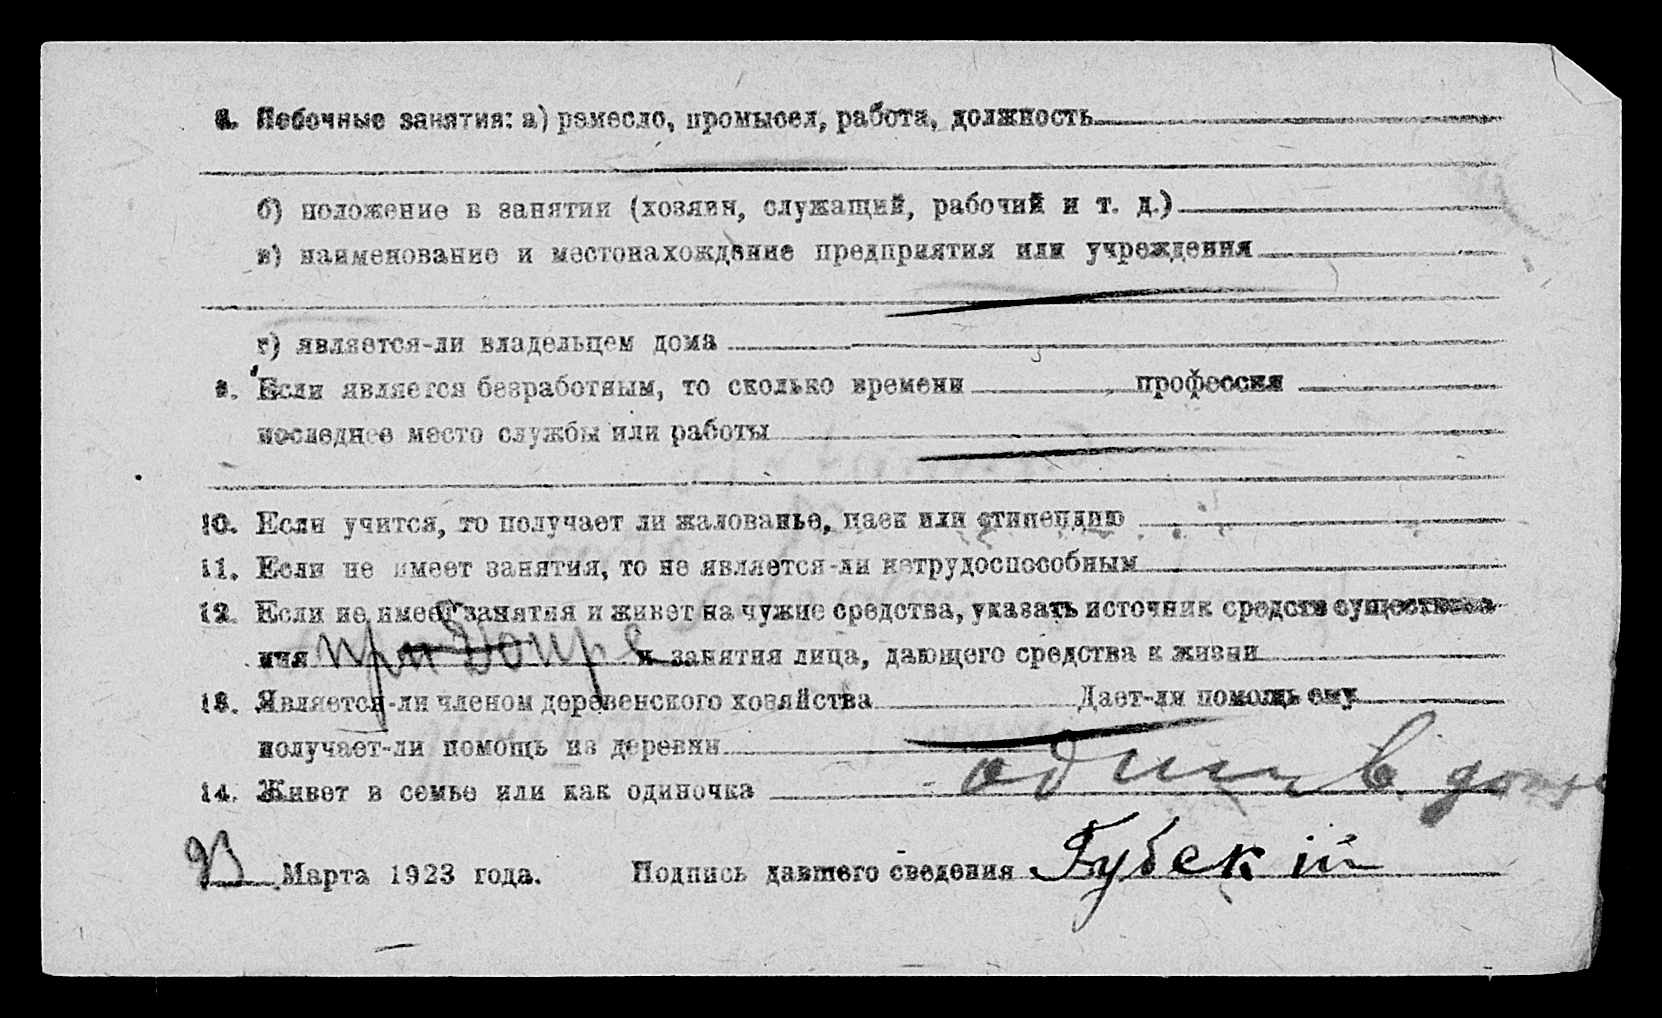 8. Побочные занятия: а) ремесло, промысел, работа, должность
б) положение в занятии (хозяин, служащий, рабочий и т. д.)
в) наименование и местонахождение предприятия или учреждения
г) является-ли владельцем дома
9. Если является безработным, то сколько времени профессия
последнее место службы или работы
10. Если учится, то получает ли жалованье, паек или стипендию
11. Если не имеет занятия, то не является-ли нетрудоспособным
12. Если не имеет занятия и живет на чужие средства, указать источник средств существова-
ния при Допре и занятия лица, дающего средства к жизни
13. Является-ли членом деревенского хозяйства Дает-ли помощь ему
получает-ли помощь из деревни
14. Живет в семье или как одиночка один в
23 Марта 1923 года. Подпись давшего сведения Губский